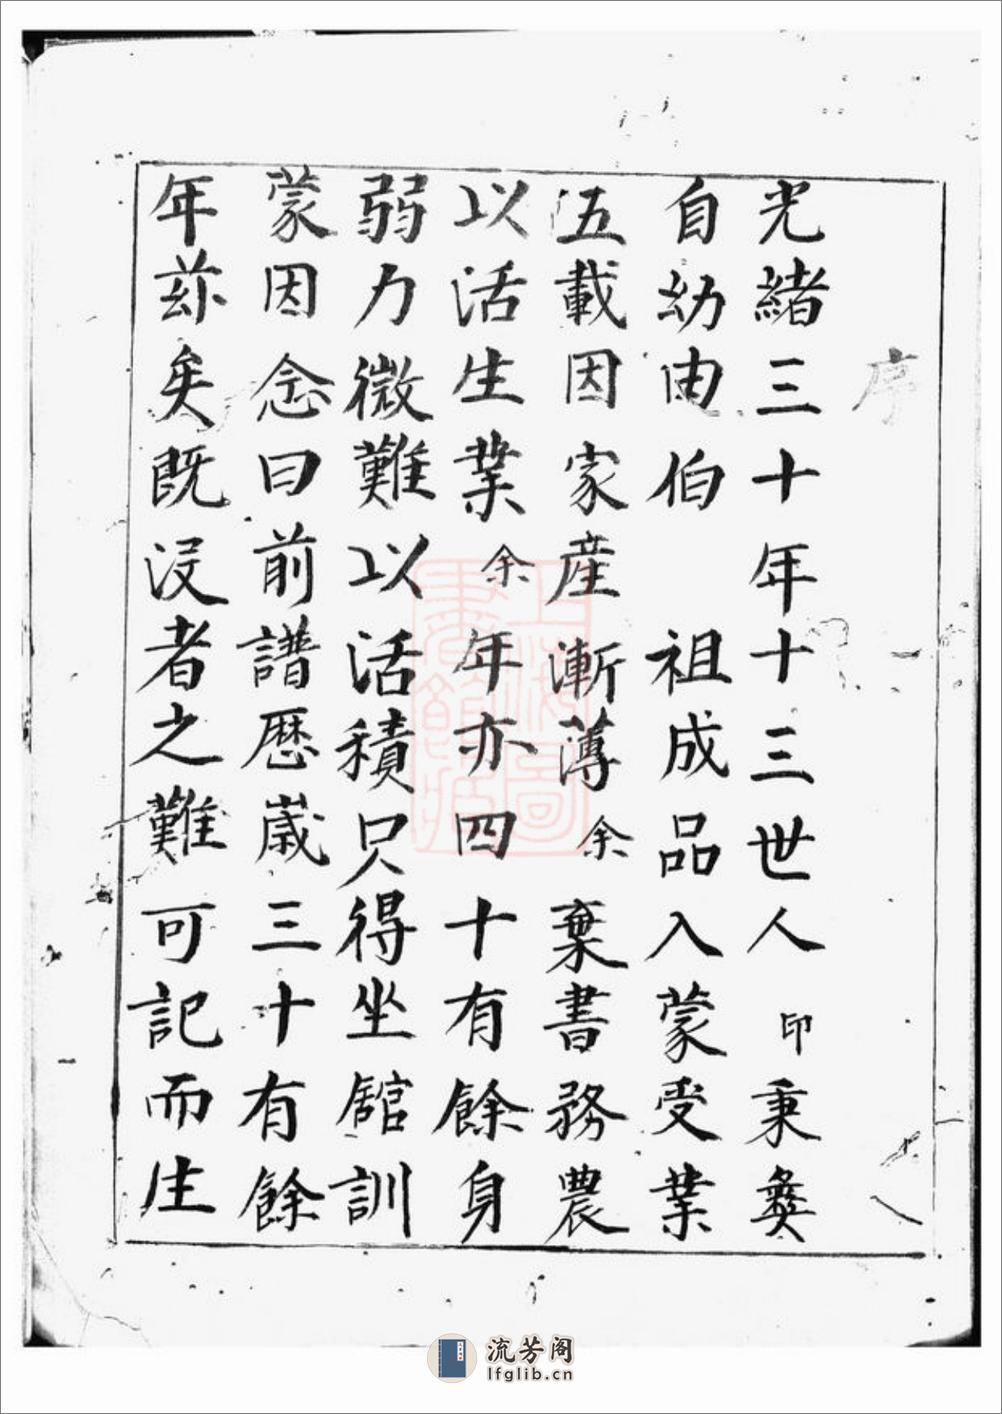 序
光緒三十年十三世人 印 秉彝
自幼由伯 祖成品入蒙受業
五載因家産漸薄余棄書務農
以活生業余年亦四十有餘身
弱力微難以活積只得坐舘訓
蒙因念曰前譜歷歲三十有餘
年茲矣既沒者之難可記而生
上海圖書館藏
流芳阁
lfglib.cn